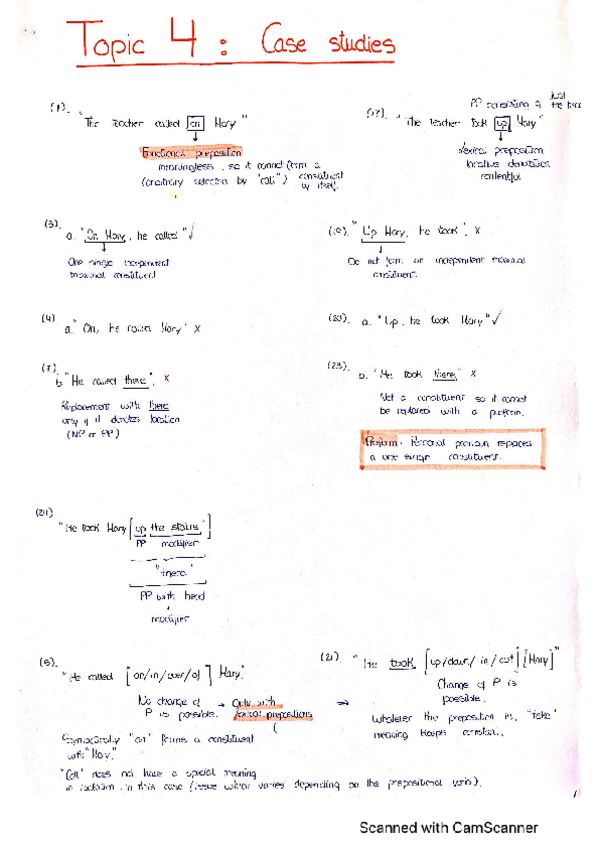 Topic 4 : Case studies
(1). "The teacher called on Mary"
Functional preposition
meaningless, so it cannot form a
(arbitrary selected by "call") constituent
by itself.
PP consisting of just
"The teacher took up Mary"
lexical preposition
locative denotation
contentful
(3).
a. "On Mary, he called" ✓
One single independent
maximal constituent
"Up Mary, he took". x
Do not form an independent maximal
constituent.
(4)
a. "On, he called Mary" x
a. "Up, he took Mary" ✓
(7).
b "He called there". x
Replacement with there
only if it denotes location
(NP or PP)
(23).
b. "He took there" x
Not a constituent so it cannot
be replaced with a proform.
Proform. Personal pronoun replaces
a one single constituent.
"He took Mary [up the stairs"]
PP modifier
"there"
PP with head
modifier
"He called [on/in/over/of] Mary.
No change of → Only with
P is possible. lexical prepositions
Semantically "on" forms a constituent
with "Mary."
"Call" does not have a special meaning
in isolation, in this case (issue which varies depending on the prepositional verb).
(21). "He took [up/down/in/out] [Mary]"
Change of P is
possible.
⇒ Whatever the preposition is, "take"
meaning keeps constant.
Scanned with CamScanner